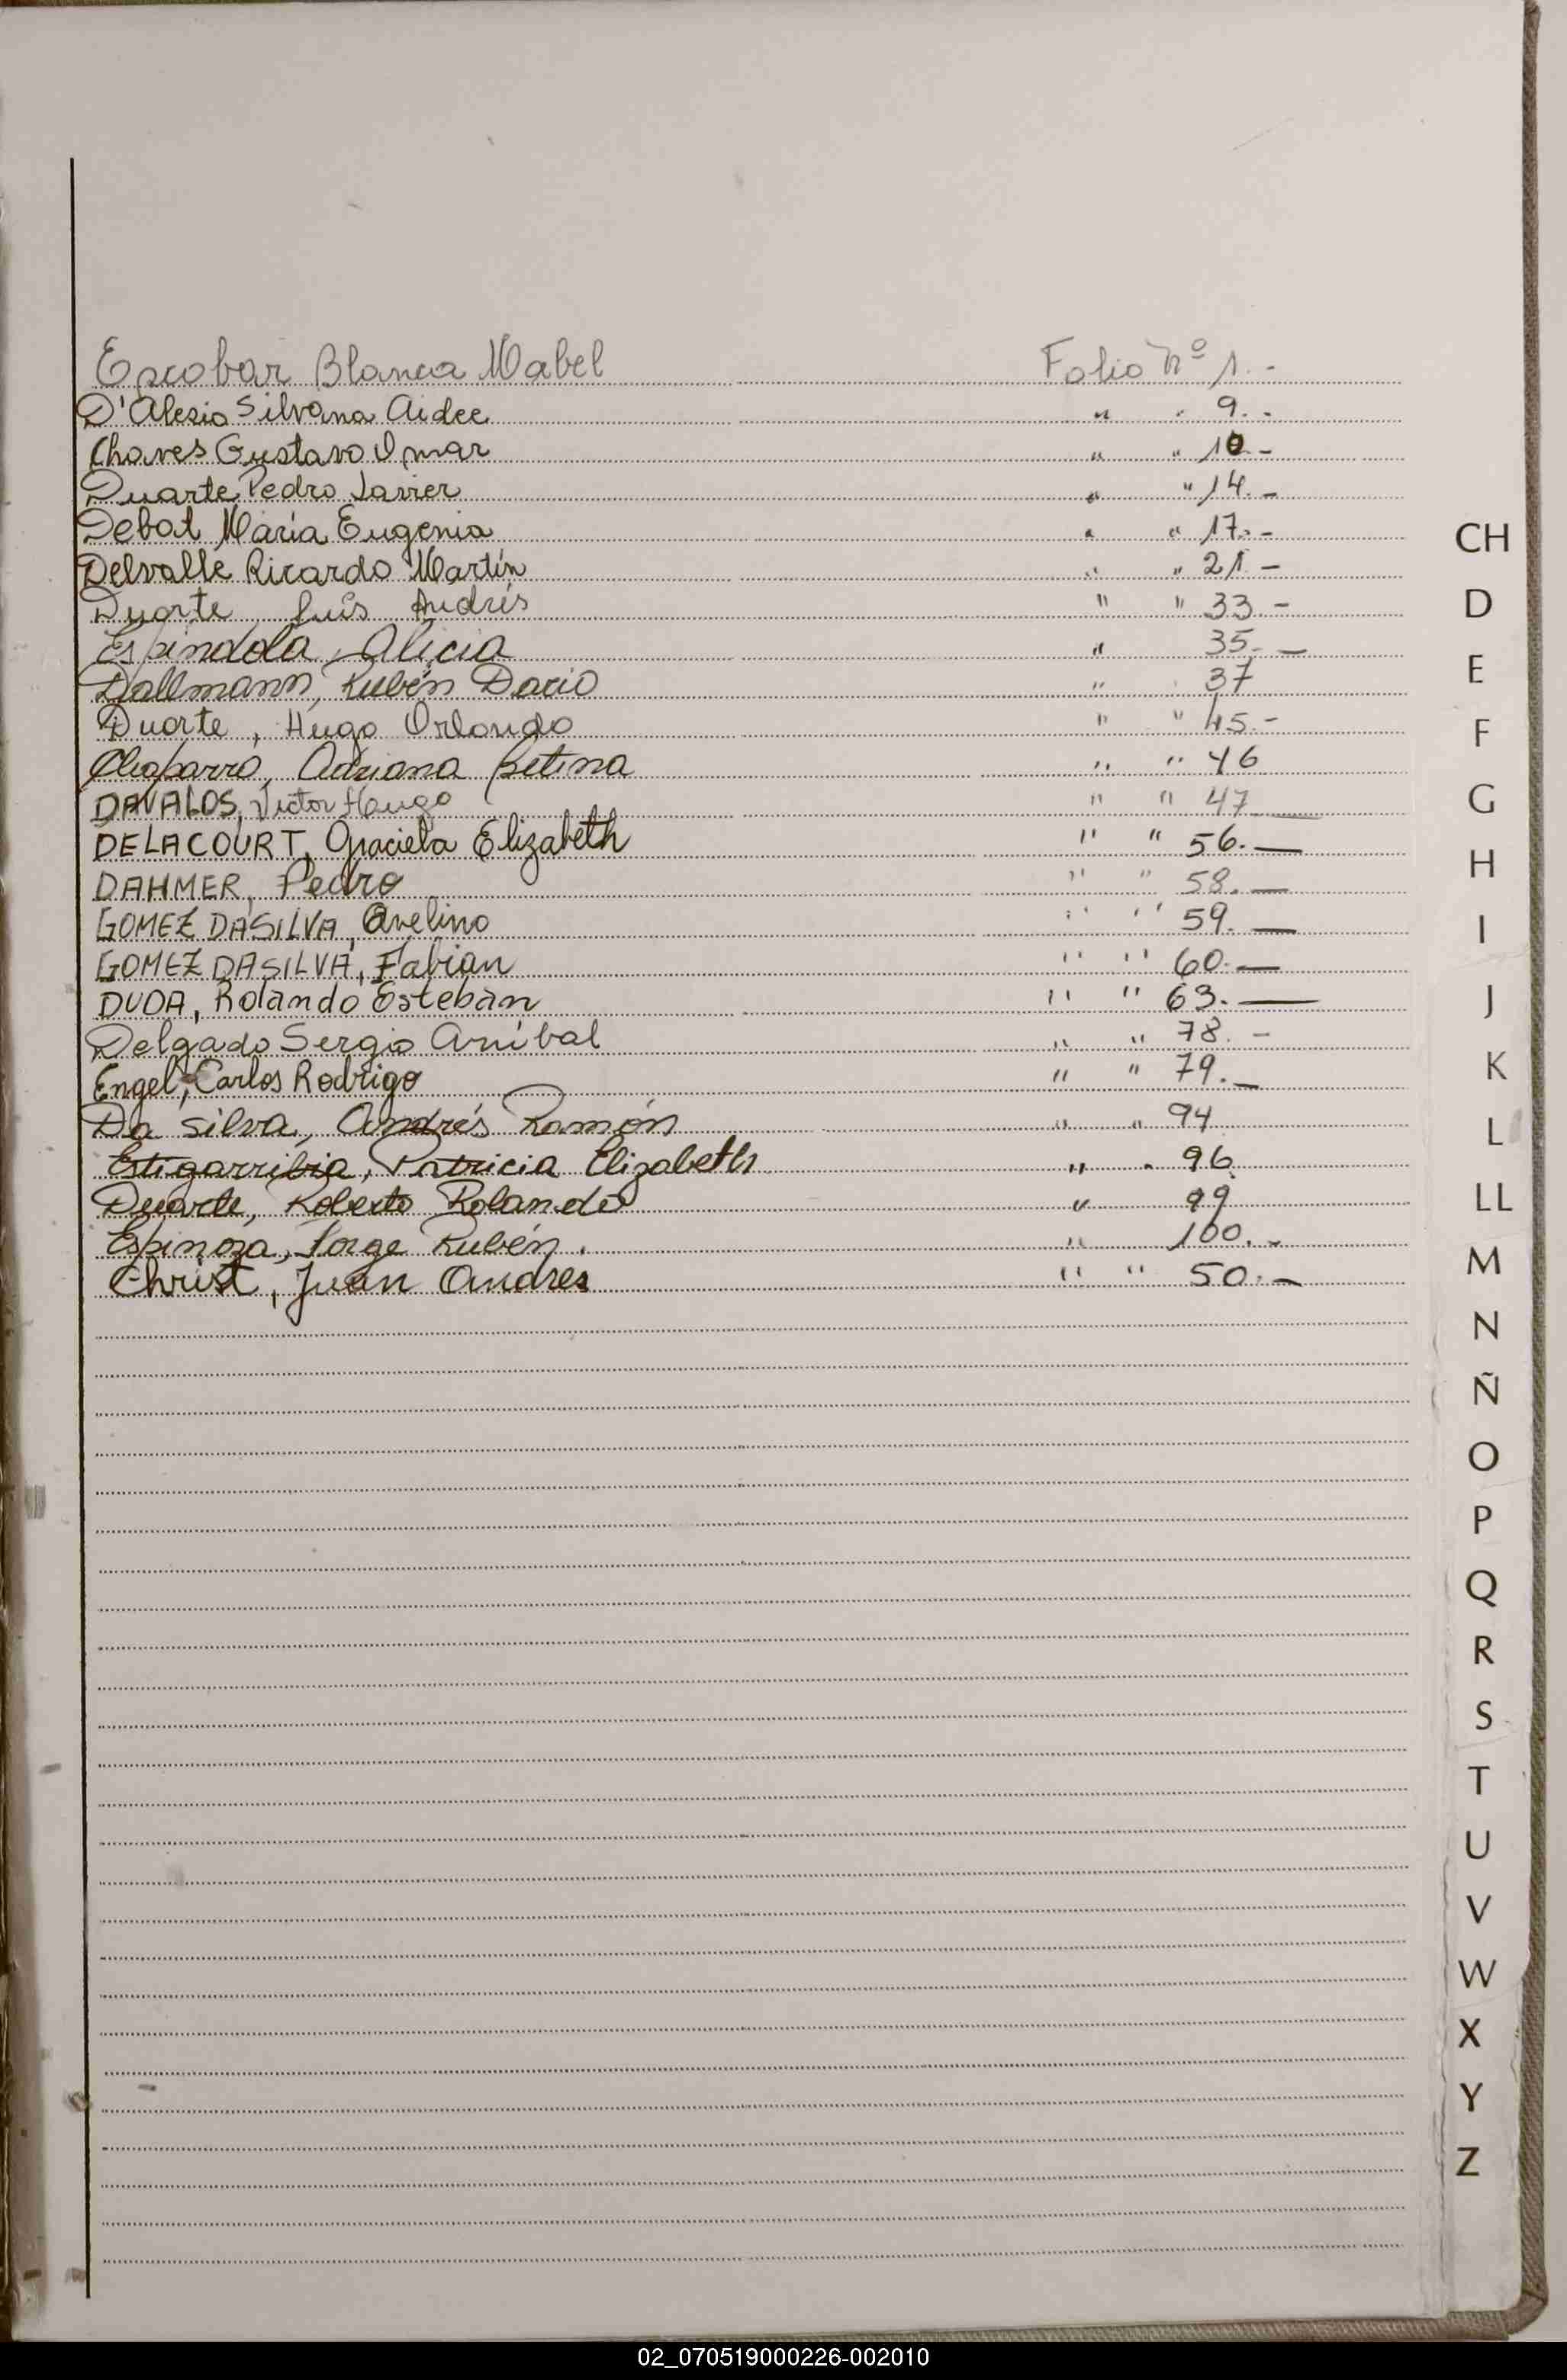 Escobar Blanca Mabel Folio nº 1.-
D'Alesio Silvana Aidee " " 9.-
Chaves Gustavo Omar " " 10.-
Duarte Pedro Javier " " 14.-
Debat María Eugenia " " 17.-
Delvalle Ricardo Martín " " 21.-
Duarte Luis Andrés " " 33.-
Espíndola, Alicia " 35.-
Dallmann, Rubén Dario " " 37
Duarte, Hugo Orlando " " 45.-
Chaparro, Adriana Betina " " 46
DAVALOS, Victor Hugo " " 47
DELACOURT, Graciela Elizabeth " " 56.-
DAHMER, Pedro " " 58.-
GOMEZ DASILVA, Avelino " " 59.-
GOMEZ DASILVA, Fabian " " 60.-
DUDA, Rolando Esteban " " 63.-
Delgado Sergio Aníbal " " 78.-
Engel, Carlos Rodrigo " " 79.-
Da Silva, Andrés Ramón " " 94
Estigarribia, Patricia Elizabeth " " 96
Duarte, Roberto Rolando " 99
Espinoza, Jorge Rubén. " 100.-
Christ, Juan Andres " " 50.-
CH
D
E
F
G
H
I
J
K
L
LL
M
N
Ñ
O
P
Q
R
S
T
U
V
W
X
Y
Z
02_070519000226-002010